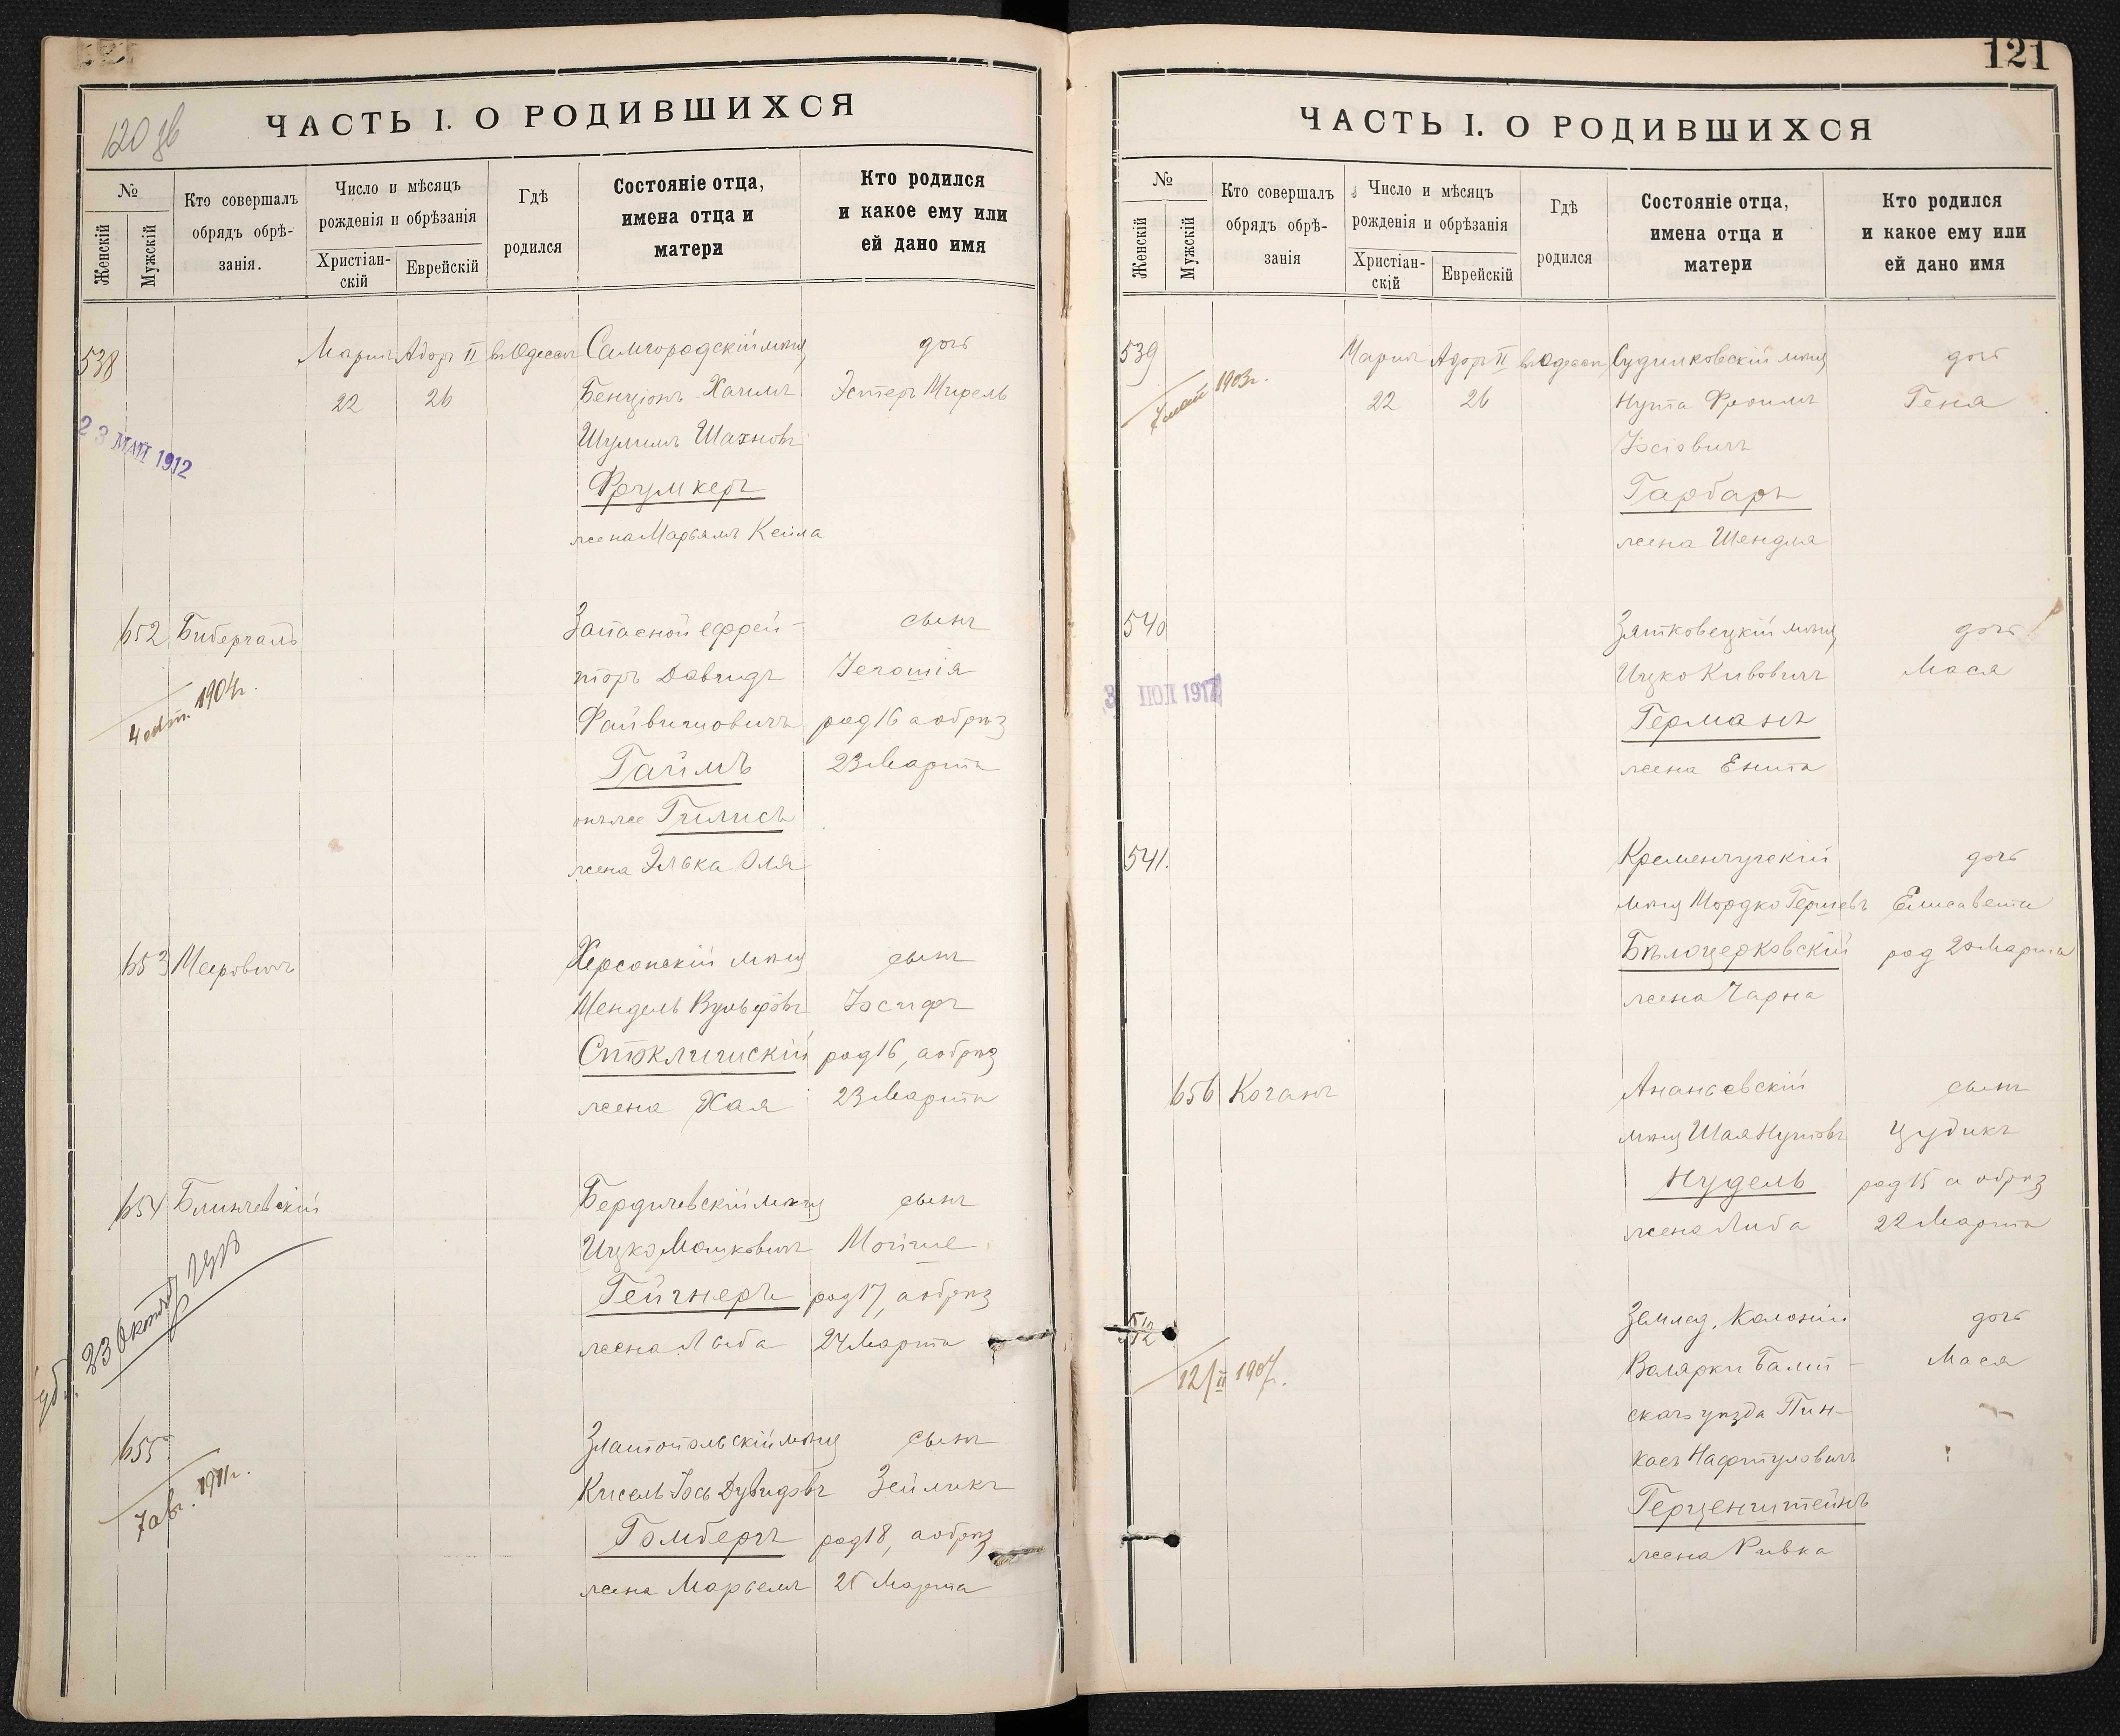 120 зв
ЧАСТЬ I. О РОДИВШИХСЯ
№
Женскій
Мужскій
Кто совершалъ
обрядъ обрѣ-
занія.
Число и мѣсяцъ
рожденія и обрѣзанія
Христіан-
скій
Еврейскій
Гдѣ
родился
Состояніе отца,
имена отца и
матери
Кто родился
и какое ему или
ей дано имя
538
Мартъ Адоръ II въ Одессѣ Самгородскій мѣщ дочь
22 26 Бенціонъ Хаимъ Эстеръ Мирель
23 МАЙ 1912
Шулимъ Шахновъ
Фрумкеръ
жена Марьямъ Кейла
652 Бибергалъ Запасной ефрей- сынъ
торъ Давидъ Іегошія
4 сент. 1904г.
Файвишовичъ род 16 а обрѣз
Гаймъ 23 Марта
онъ же Гилисъ
жена Элька Эля
653 Мееровичъ Херсонскій мѣщ сынъ
Мендель Вульфовъ Іосифъ
Стоклишскій род 16, а обрѣз
жена Хая 23 Марта
654 Блинчевскій Бердичевскій мѣщ сынъ
Ицко Мошковичъ Мойше
23 Октяб
Гейгнеръ род 17, а обрѣз
жена Люба 24 Марта
655 Златопольскій мѣщ сынъ
Кисель Іось Дувидовъ Зейликъ
7 авг. 1911г.
Гомбергъ род 18, а обрѣз
жена Марьемъ 25 Марта
121
ЧАСТЬ I. О РОДИВШИХСЯ
№
Женскій
Мужскій
Кто совершалъ
обрядъ обрѣ-
занія
Число и мѣсяцъ
рожденія и обрѣзанія
Христіан-
скій
Еврейскій
Гдѣ
родился
Состояніе отца,
имена отца и
матери
Кто родился
и какое ему или
ей дано имя
539 Мартъ Адоръ II въ Одессѣ Судилковскій мѣщ дочь
7 май 1903г.
22 26 Нута Фроимъ Геня
Іосіовичъ
Гарбаръ
жена Шендля
540 Зятковецкій мѣщ дочь
Ицко Кивовичъ Мася
Германъ
жена Ента
541. Кременчугскій дочь
мѣщ Мордко Гершевъ Елисавета
Бѣлоцерковскій род 20 Марта
жена Чарна
656 Коганъ Ананьевскій сынъ
мѣщ Шая Нутовъ Цудикъ
Нудель род 15 а обрѣз
жена Либа 22 Марта
542 Землед. Колоніи дочь
12/II 1907г.
Волярки Балт- Мася
скаго уѣзда Пин-
касъ Нафтуловичъ
Герценштейнъ
жена Ривка